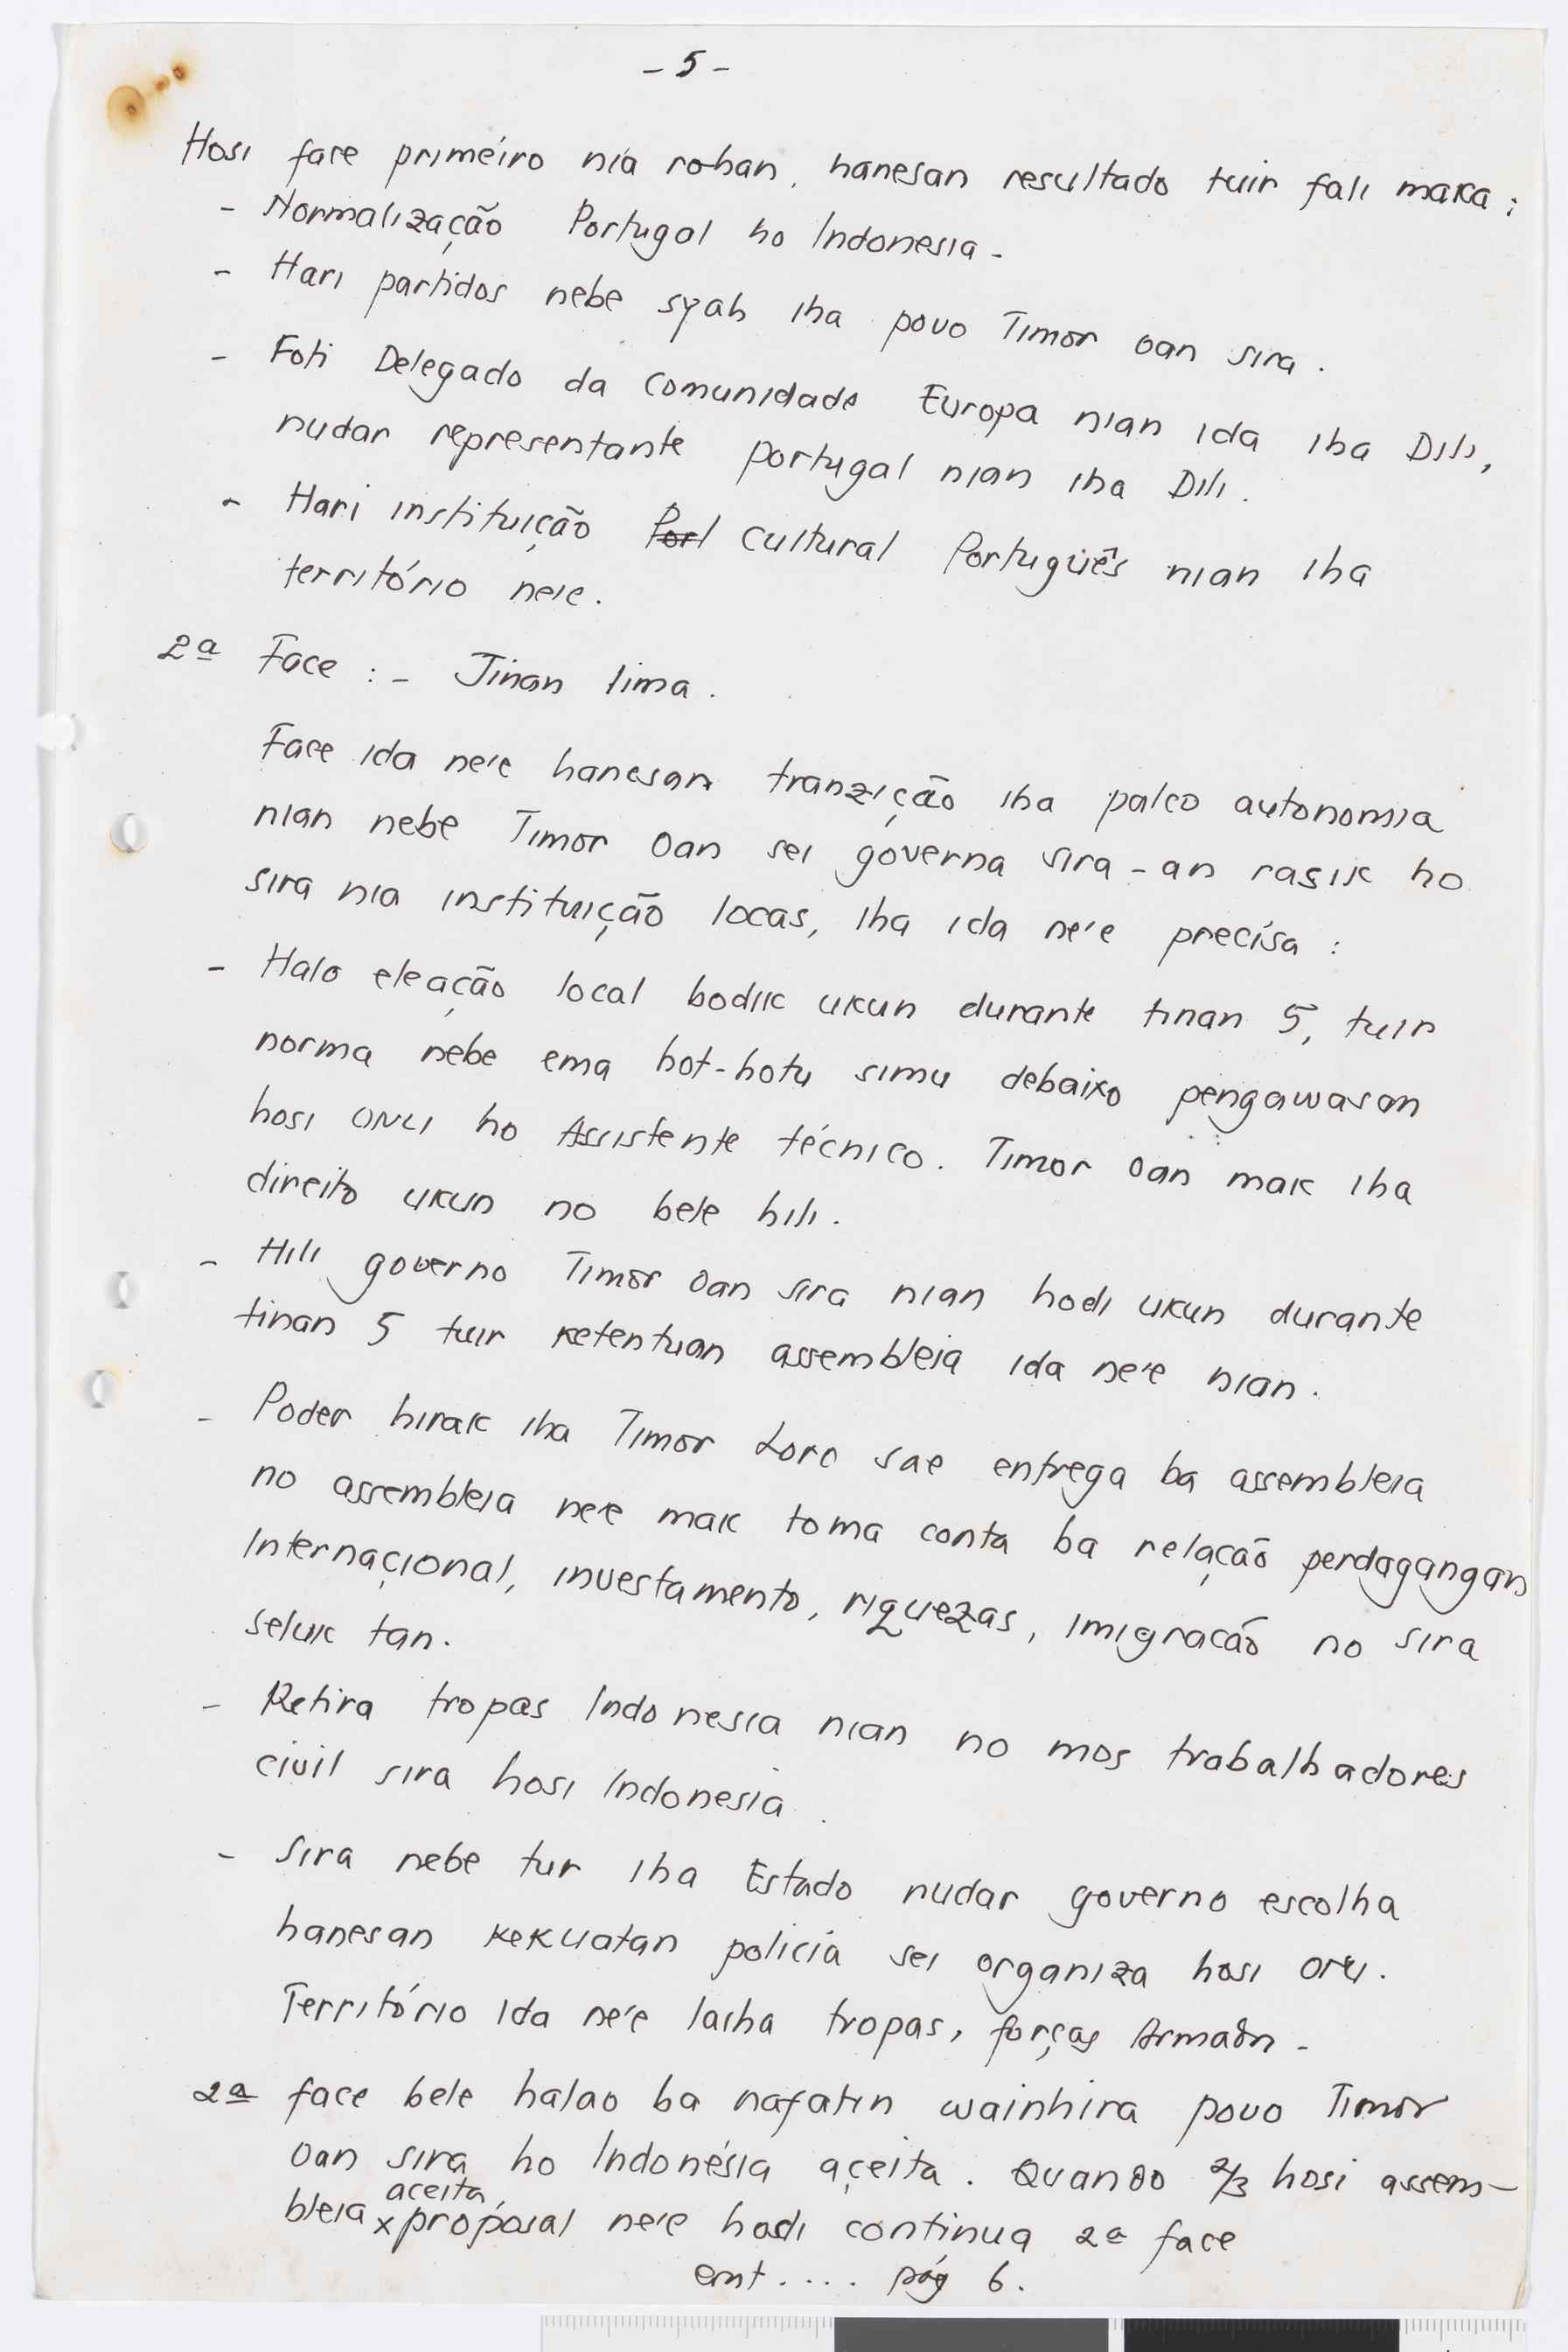 - 5 -
Hosi face primeiro nia rohan, hanesan resultado tuir fali maka :
- Normalização Portugal ho Indonesia -
- Hari partidos nebe syah iha povo Timor oan sira .
- Foti Delegado da Comunidade Europa nian ida iha Dili,
nudar representante portugal nian iha Dili .
- Hari instituição Porl cultural Portugüês nian iha
território neie .
2ª Face : - Tinan lima .
Face ida ne'e hanesan tranzição iha palco autonomia
nian nebe Timor Oan sei governa sira - an rasik ho
sira nia instituição locas, iha ida ne'e precisa :
- Halo eleação local bodik ukun durante tinan 5, tuir
norma nebe ema hot-hotu simu debaixo pengawasan
hosi ONU ho Assistente técnico . Timor Oan mak iha
direito ukun no bele hili .
- Hili governo Timor Oan sira nian hodi ukun durante
tinan 5 tuir ketentuan assembleia ida ne'e nian .
- Poder hirak iha Timor Loro sae entrega ba assembleia
no assembleia ne'e mak toma conta ba relação perdagangan
Internaçional, investamento, riquezas, imigracão no sira
seluk tan .
- Retira tropas Indonesia nian no mos trabalhadores
civil sira hosi Indonesia .
- Sira nebe tur iha Estado nudar governo escolha
hanesan kekuatan policia sei organiza hosi ONU .
Território ida ne'e laiha tropas, forças -
2ª face bele halao ba nafatin wainhira povo Timor
Oan sira ho Indonésia açeita . Quando 2/3 hosi assem-
aceita
bleia x proposal ne'e hodi continua 2ª face
.... pág 6 .